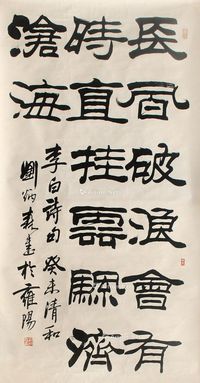 長風破浪會有
時直挂雲颿濟
滄海
李白詩句 癸未清和
劉炳森書於雍陽